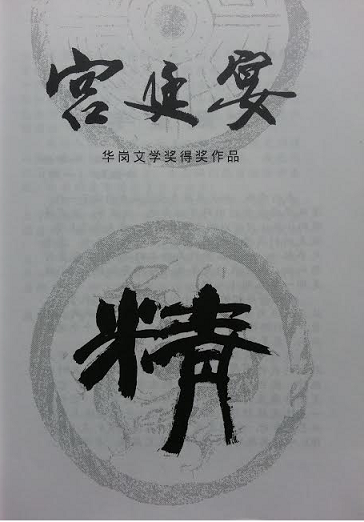 宫廷宴
华岗文学奖得奖作品
精